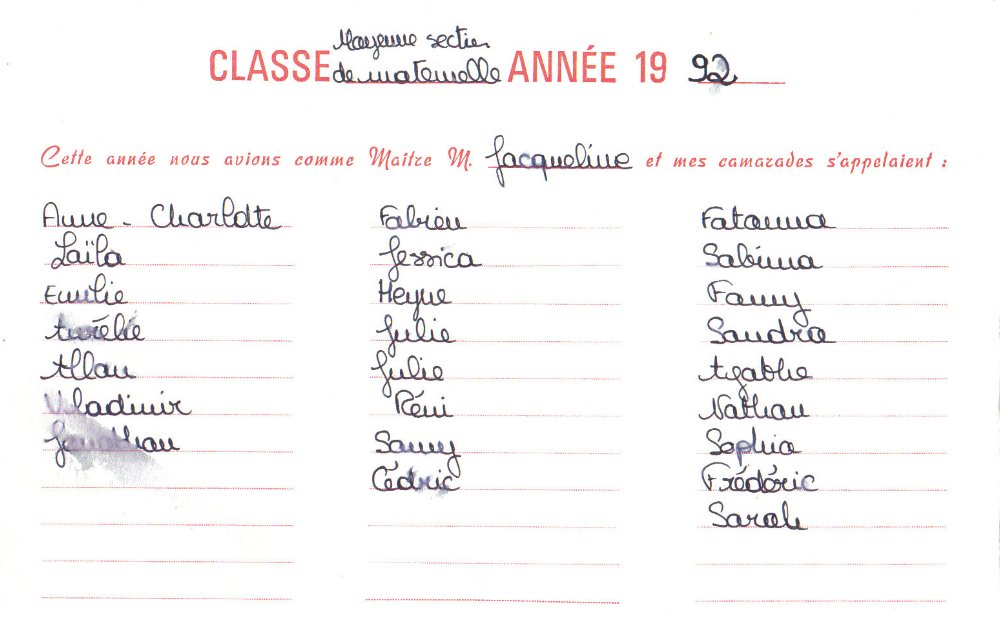 CLASSE Moyenne section de maternelle ANNÉE 19 92
Cette année nous avions comme Maître M. Jacqueline et mes camarades s'appelaient :
Anne - Charlotte
Laïla
Emilie
Aurélie
Allan
Vladimir
Jonathan
Fabien
Jessica
Julie
Julie
Rémi
Samy
Cédric
Fatouma
Sabrina
Fanny
Sandra
Agathe
Nathan
Sophia
Frédéric
Sarah